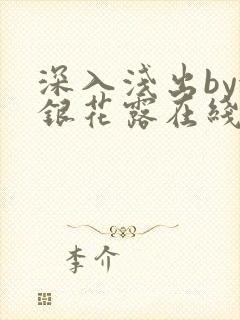 深入浅出by
銀花露在綫
李介